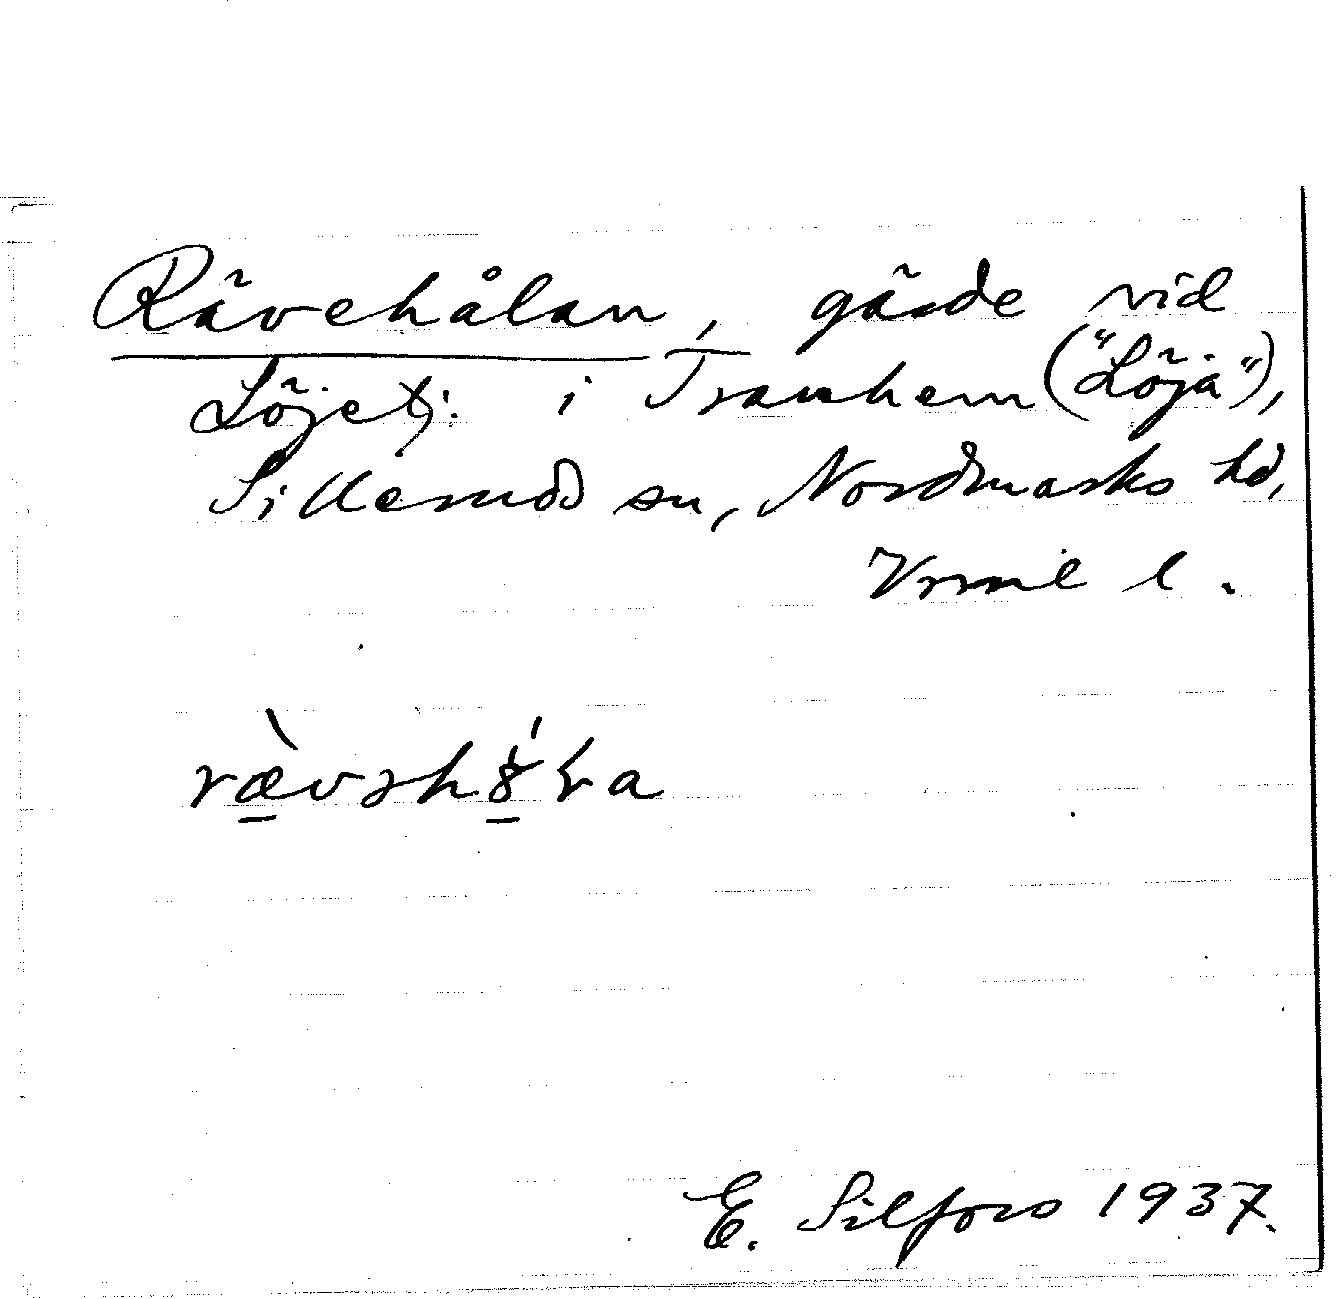 Rävehålan, gärde vid
Löjetj. i Tranhem ("Löja"),
Sillerud sn, Nordmarks hd,
Vrml l.
ræ̀vəhɷ́ɽa
E. Silfors 1937.